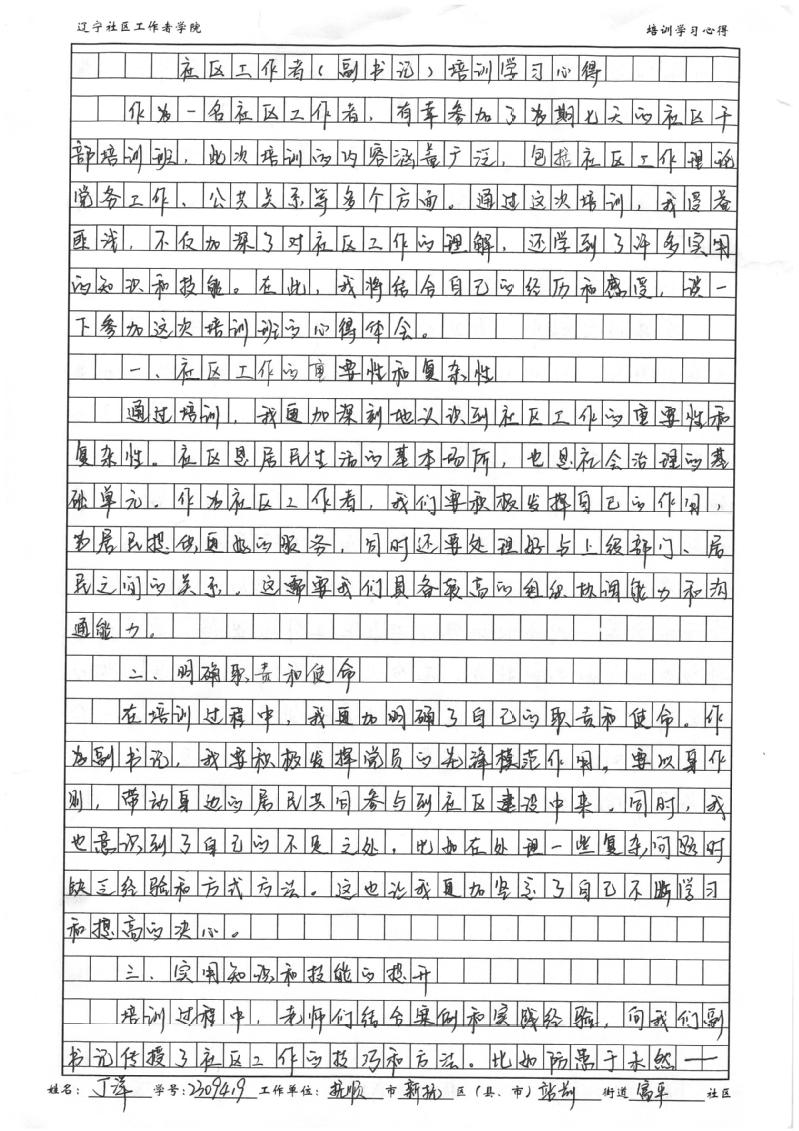 辽宁社区工作者学院 培训学习心得
社区工作者（副书记）培训学习心得
作为一名社区工作者，有幸参加了为期七天的社区干
部培训班，此次培训的内容涵盖广泛，包括社区工作理论
党务工作、公共关系等多个方面。通过这次培训，我受益
匪浅，不仅加深了对社区工作的理解，还学到了许多实用
的知识和技能。在此，我将结合自己的经历和感受，谈一
下参加这次培训班的心得体会。
一、社区工作的重要性和复杂性
通过培训，我更加深刻地认识到社区工作的重要性和
复杂性。社区是居民生活的基本场所，也是社会治理的基
础单元。作为社区工作者，我们要积极发挥自己的作用，
为居民提供更好的服务，同时还要处理好与上级部门、居
民之间的关系。这需要我们具备较高的组织协调能力和沟
通能力。
二、明确职责和使命
在培训过程中，我更加明确了自己的职责和使命。作
为副书记，我要积极发挥党员的先锋模范作用。要以身作
则，带动身边的居民共同参与到社区建设中来。同时，我
也意识到了自己的不足之处，比如在处理一些复杂问题时
缺乏经验和方式方法。这也让我更加坚定了自己不断学习
和提高的决心。
三、实用知识和技能的提升
培训过程中，老师们结合案例和实践经验，向我们副
书记传授了社区工作的技巧和方法。比如防患于未然——
姓名：丁洋 学号：2309419 工作单位：抚顺 市 新抚 区（县、市）站前 街道 富平 社区